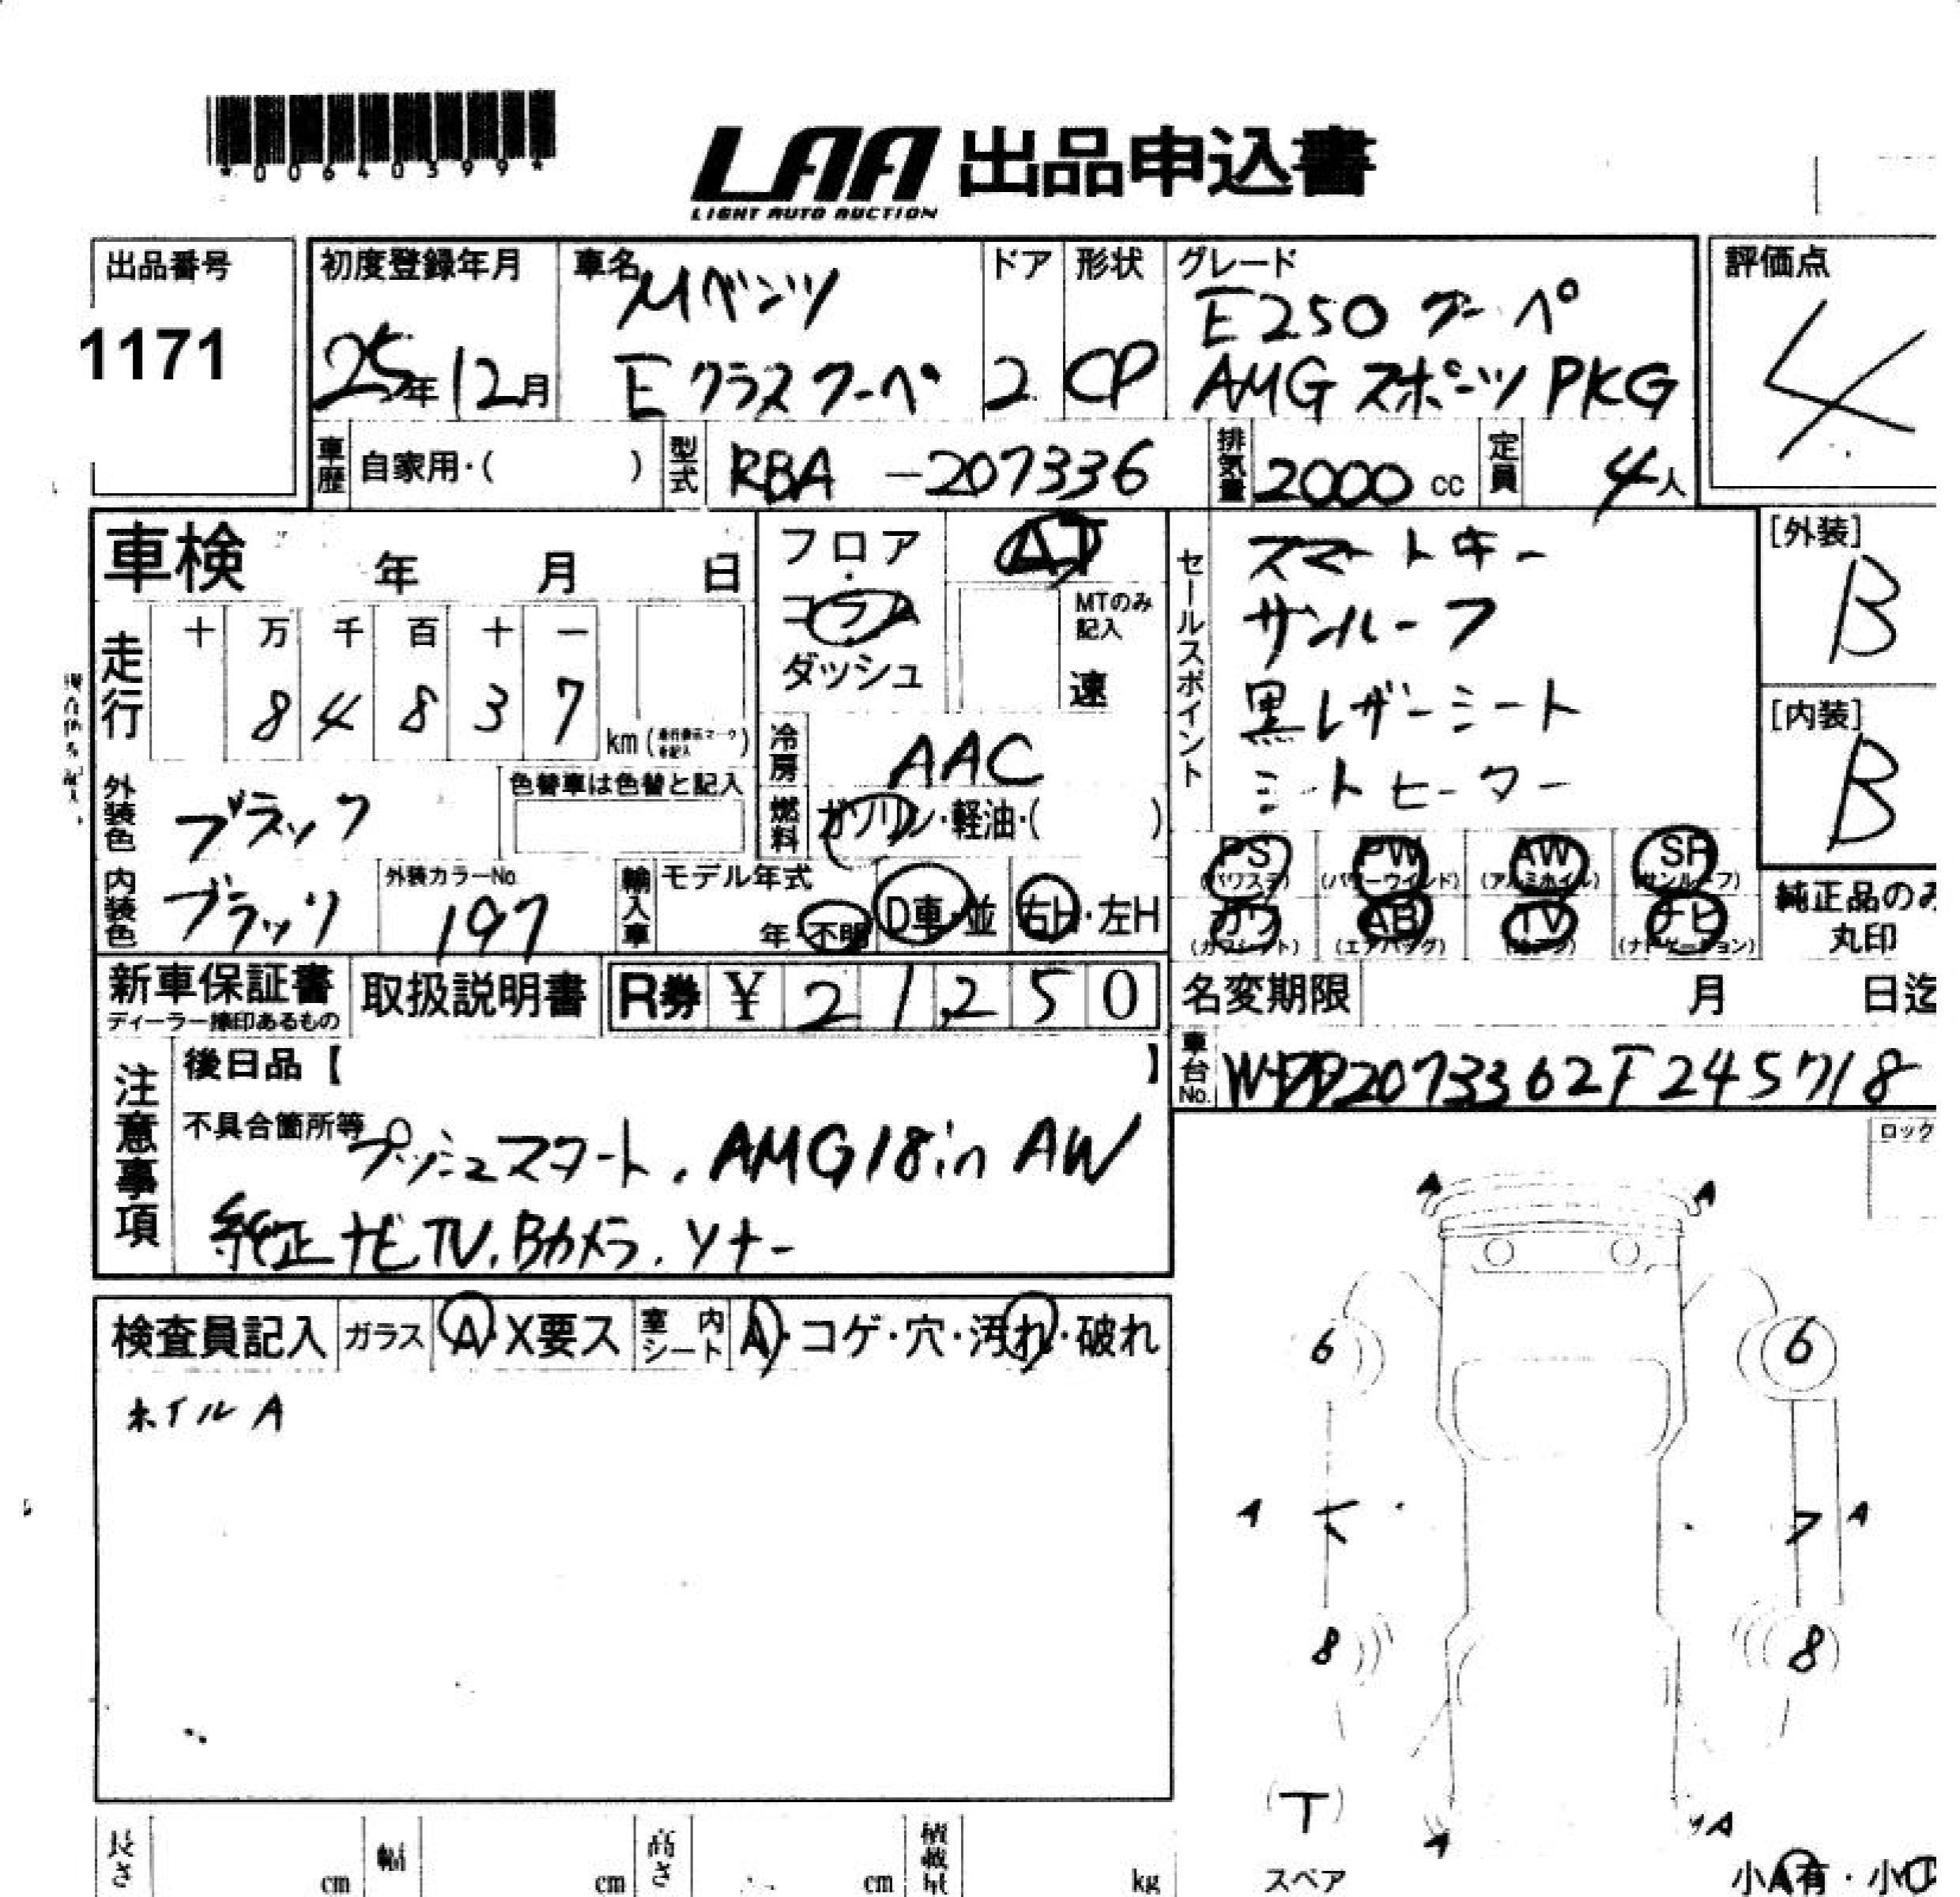 *00640399*
LAA 出品申込書
LIGHT AUTO AUCTION
出品番号
1171
初度登録年月
25年12月
車名
Mベンツ
Eクラスクーペ
ドア
2
形状
CP
グレード
E250 クーペ
AMG スポーツ PKG
評価点
4
車歴 自家用・( )
型式 RBA -207336
排気量 2000 cc
定員 4人
車検 年 月 日
走行
十 万 千 百 十 一
8 4 8 3 7
km(
フロア・コラム・ダッシュ
AT
MTのみ記入
速
冷房 AAC
燃料 ガソリン・軽油・( )
セールスポイント
スマートキー
サンルーフ
黒レザーシート
シートヒーター
[外装]
B
[内装]
B
外装色 ブラック
色替車は色替と記入
内装色 ブラック
外装カラーNo.
197
輸入車 モデル年式
年・不明 D車・並 右H・左H
PS PW AW SR
(パワステ) (パワーウインド) (アルミホイル) (サンルーフ)
カワ AB TV ナビ
(カワシート) (エアバッグ) (ナビゲーション)
純正品のみ
丸印
新車保証書
ディーラー捺印あるもの
取扱説明書
R券 ¥ 21,250
名変期限 月 日迄
車台No. WDD2073362F245718
注意事項
後日品【 】
不具合箇所等
プッシュスタート, AMG18in AW
純正ナビTV, Bカメラ, ソナー
ロック
検査員記入 ガラス A・X要ス 室内シート A・コゲ・穴・汚れ・破れ
ホイルA
A A
6 6
A A
7
8 8
(T)
A A
スペア
小A有・小
長さ cm 幅 cm 高さ cm 積載量 kg